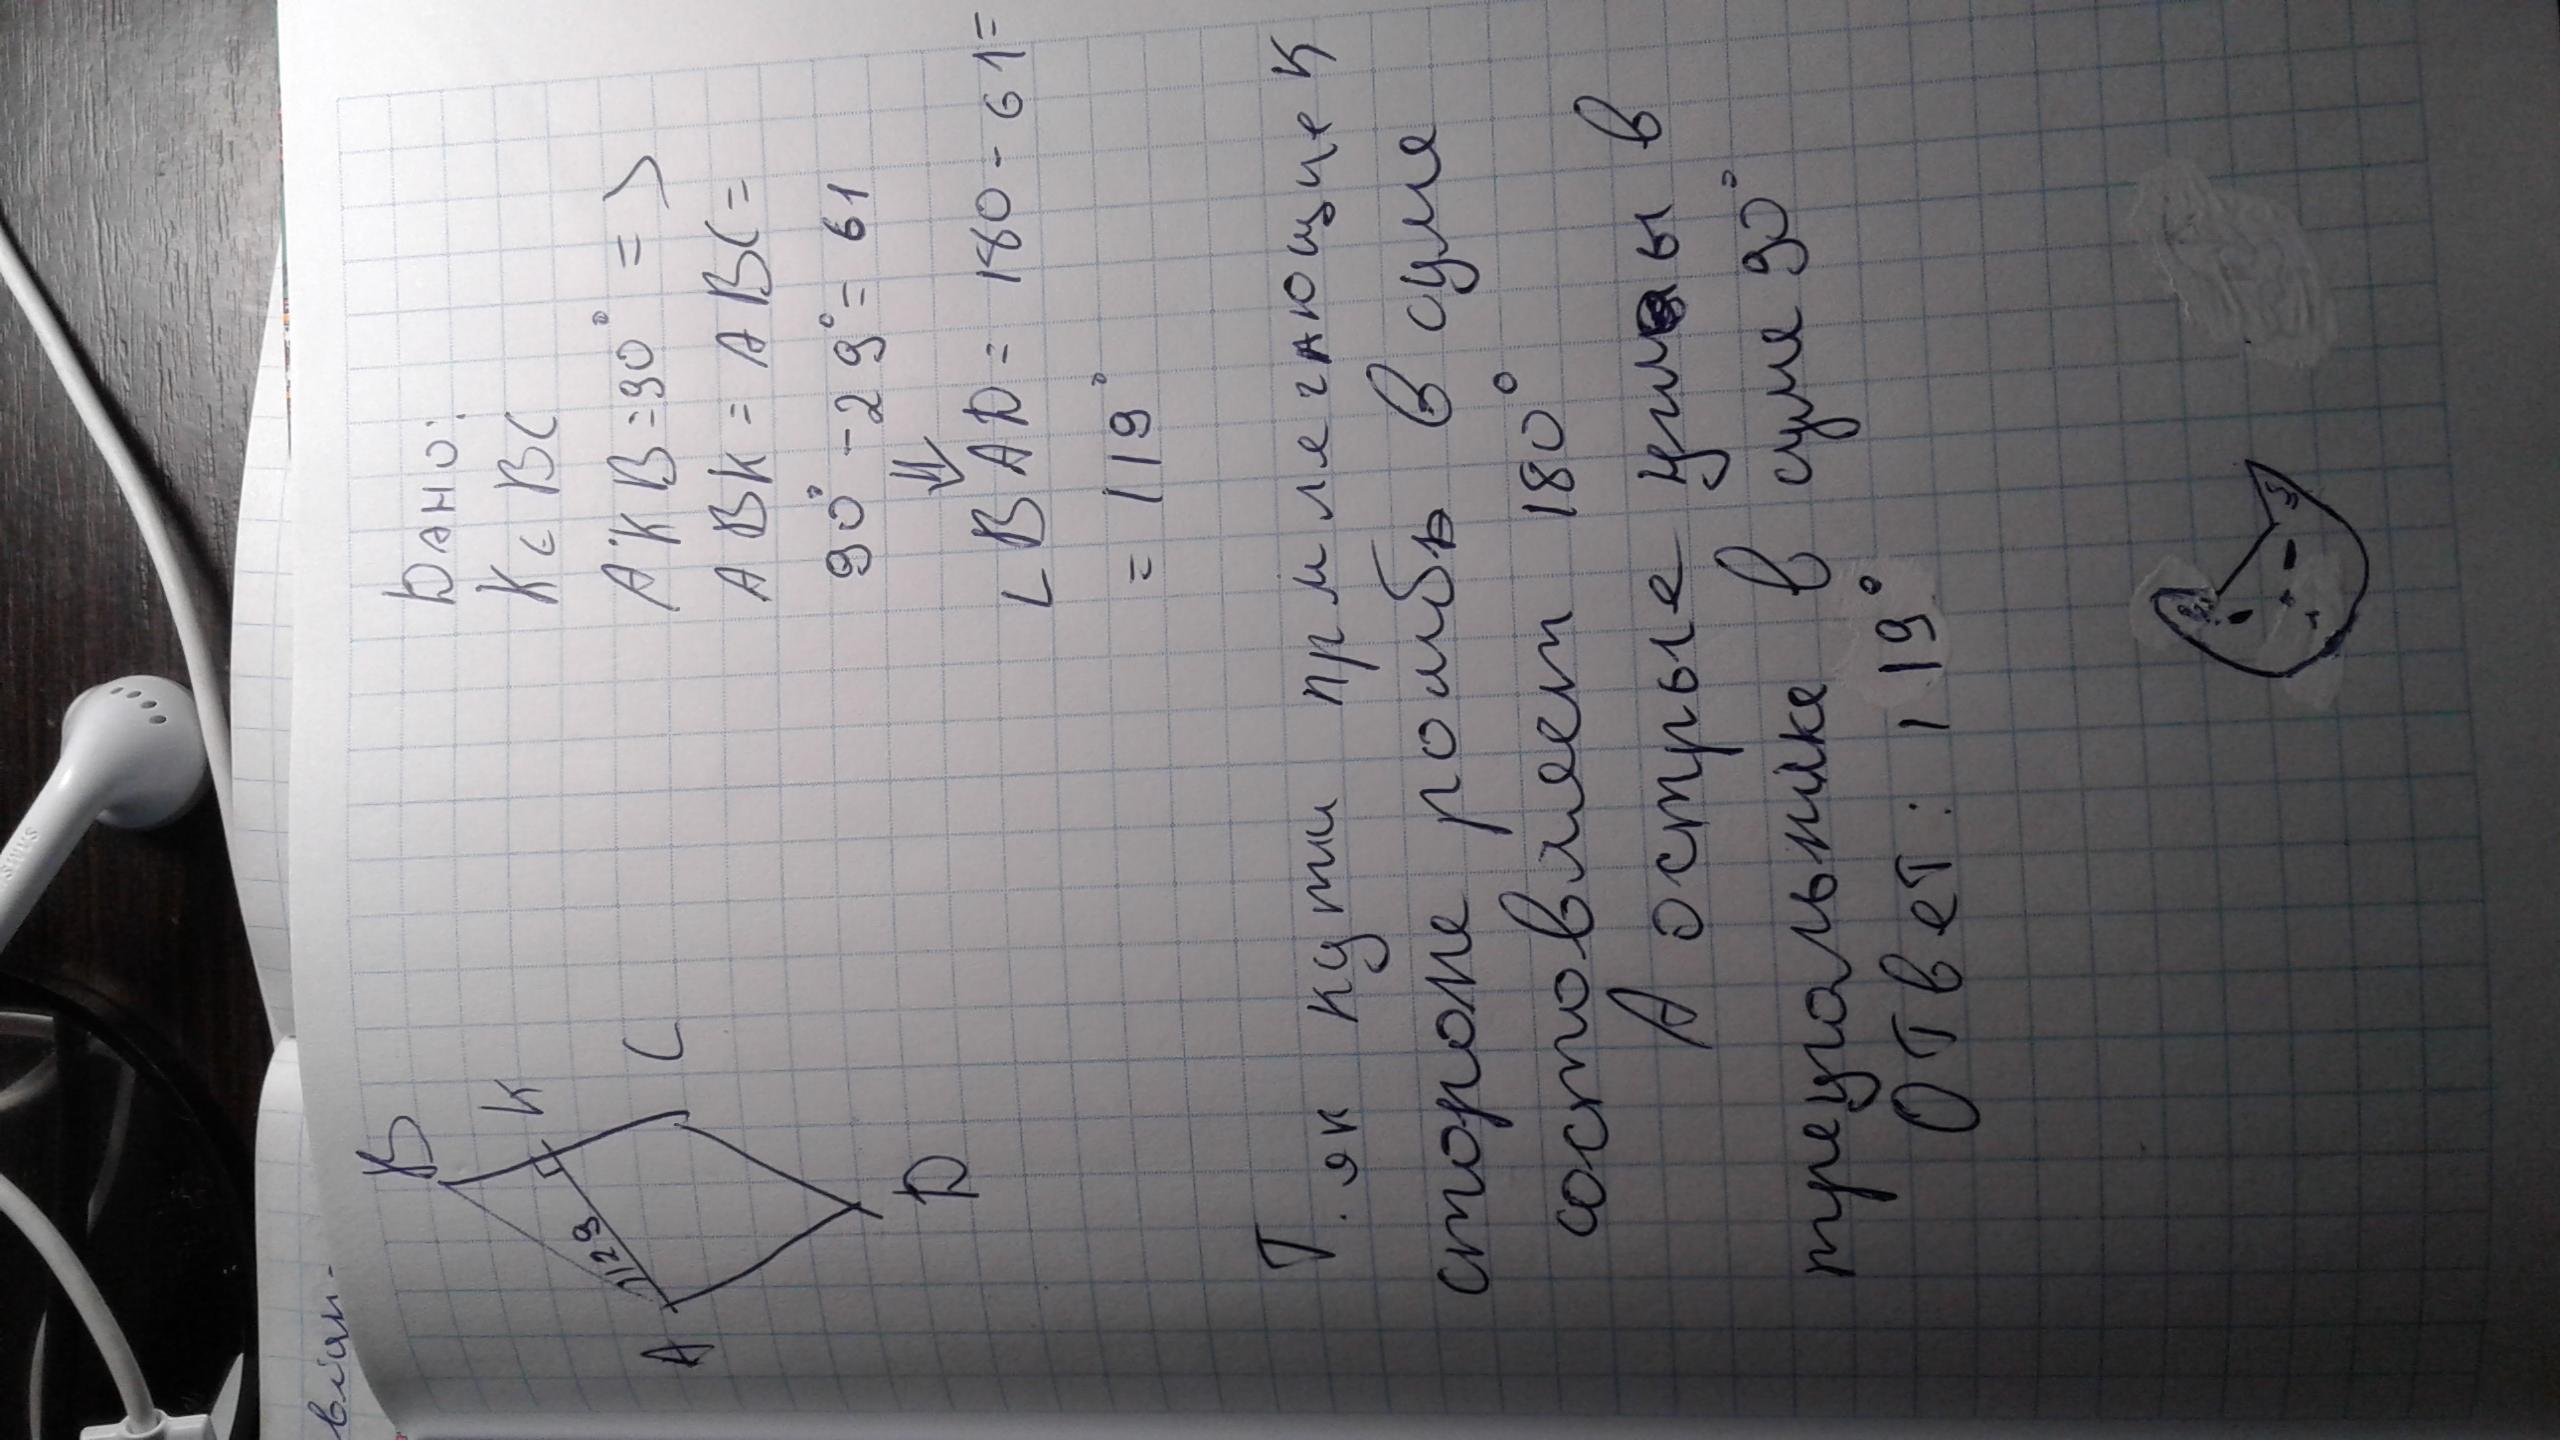 влян-
B
K
C
A
D
29
Дано:
K ⊂ BC
AKB = 90° =>
ABK = ABC =
90° - 29° = 61
⇓
∠BAD = 180 - 61 =
= 119°
Т. як кути прилегающие к
стороне ромба в суме
состовляет 180°
А острые углы в
треугольнике в суме 90°
Ответ: 119°